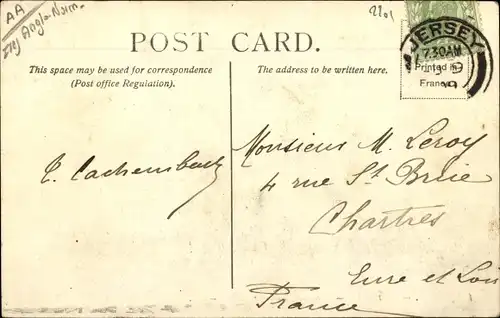 AA
Iles Anglo-Norm.
2201
POST CARD.
JERSEY
7.30AM
Printed in
France
This space may be used for correspondence
(Post office Regulation).
The address to be written here.
Monsieur M. Leroy
4 rue St Brie
Chartres
Eure et Loir
France